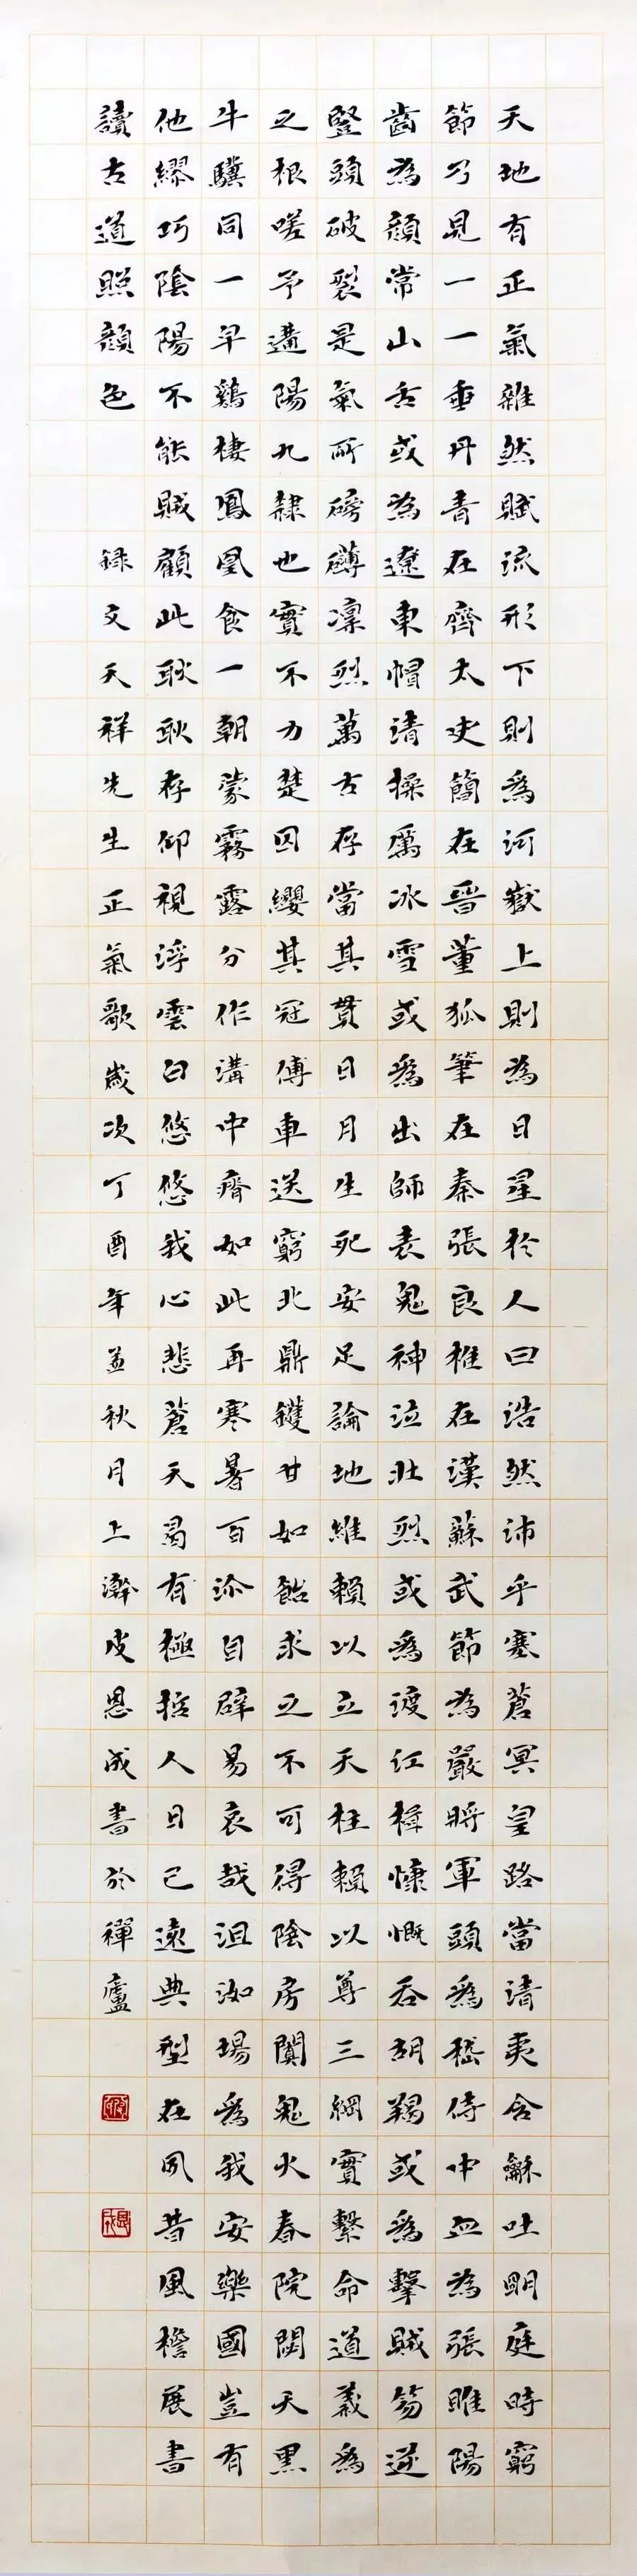 天地有正氣雜然賦流形下則為河嶽上則為日星於人曰浩然沛乎塞蒼冥皇路當清夷含龢吐明庭時窮
節乃見一一垂丹青在齊太史簡在晉董狐筆在秦張良椎在漢蘇武節為嚴將軍頭為嵇侍中血為張睢陽
齒為顏常山舌或為遼東帽清操厲冰雪或為出師表鬼神泣壯烈或為渡江楫慷慨吞胡羯或為擊賊笏逆
豎頭破裂是氣所磅礴凜烈萬古存當其貫日月生死安足論地維賴以立天柱賴以尊三綱實繫命道義為
之根嗟予遘陽九隸也實不力楚囚纓其冠傅車送窮北鼎鑊甘如飴求之不可得陰房闐鬼火春院閟天黑
牛驥同一早鷄棲鳳凰食一朝蒙霧露分作溝中瘠如此再寒暑百沴自辟易哀哉沮洳場為我安樂國豈有
他繆巧陰陽不能賊顧此耿耿存仰視浮雲白悠悠我心悲蒼天曷有極哲人日已遠典型在夙昔風檐展書
讀古道照顏色 錄文天祥先生正氣歌歲次丁酉年孟秋月上澣皮恩成書於禪廬